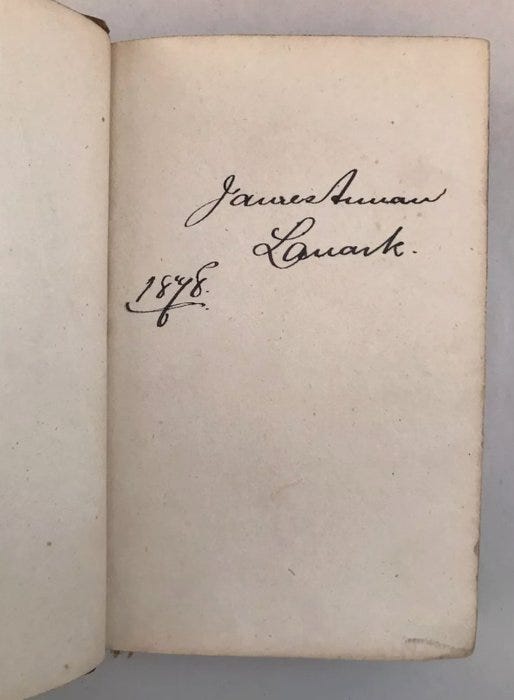 James Annan
Lanark.
1878.